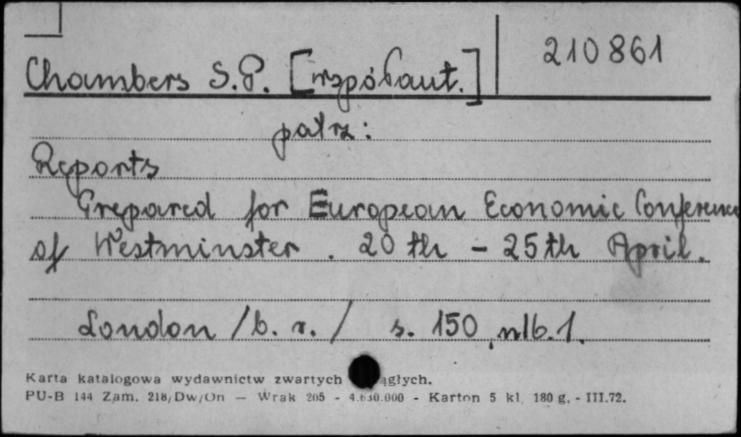 210861
Chambers S.P. [współaut.]
patrz:
Reports
Prepared for European Economic Conference
of Westminster. 20 th - 25 th April.
London /b. r./ s. 150, nlb. 1.
Karta katalogowa wydawnictw zwartych ciągłych.
PU-B 144 Zam. 218/Dw/On — Wrak 205 - 4.630.000 - Karton 5 kl. 180 g. - III.72.